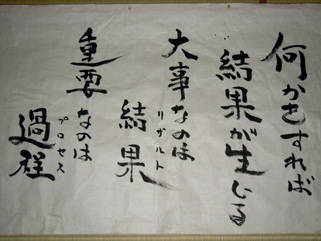 何かをすれば
結果が生じる
大事なのは
結果
リザルト
重要なのは
過程
プロセス